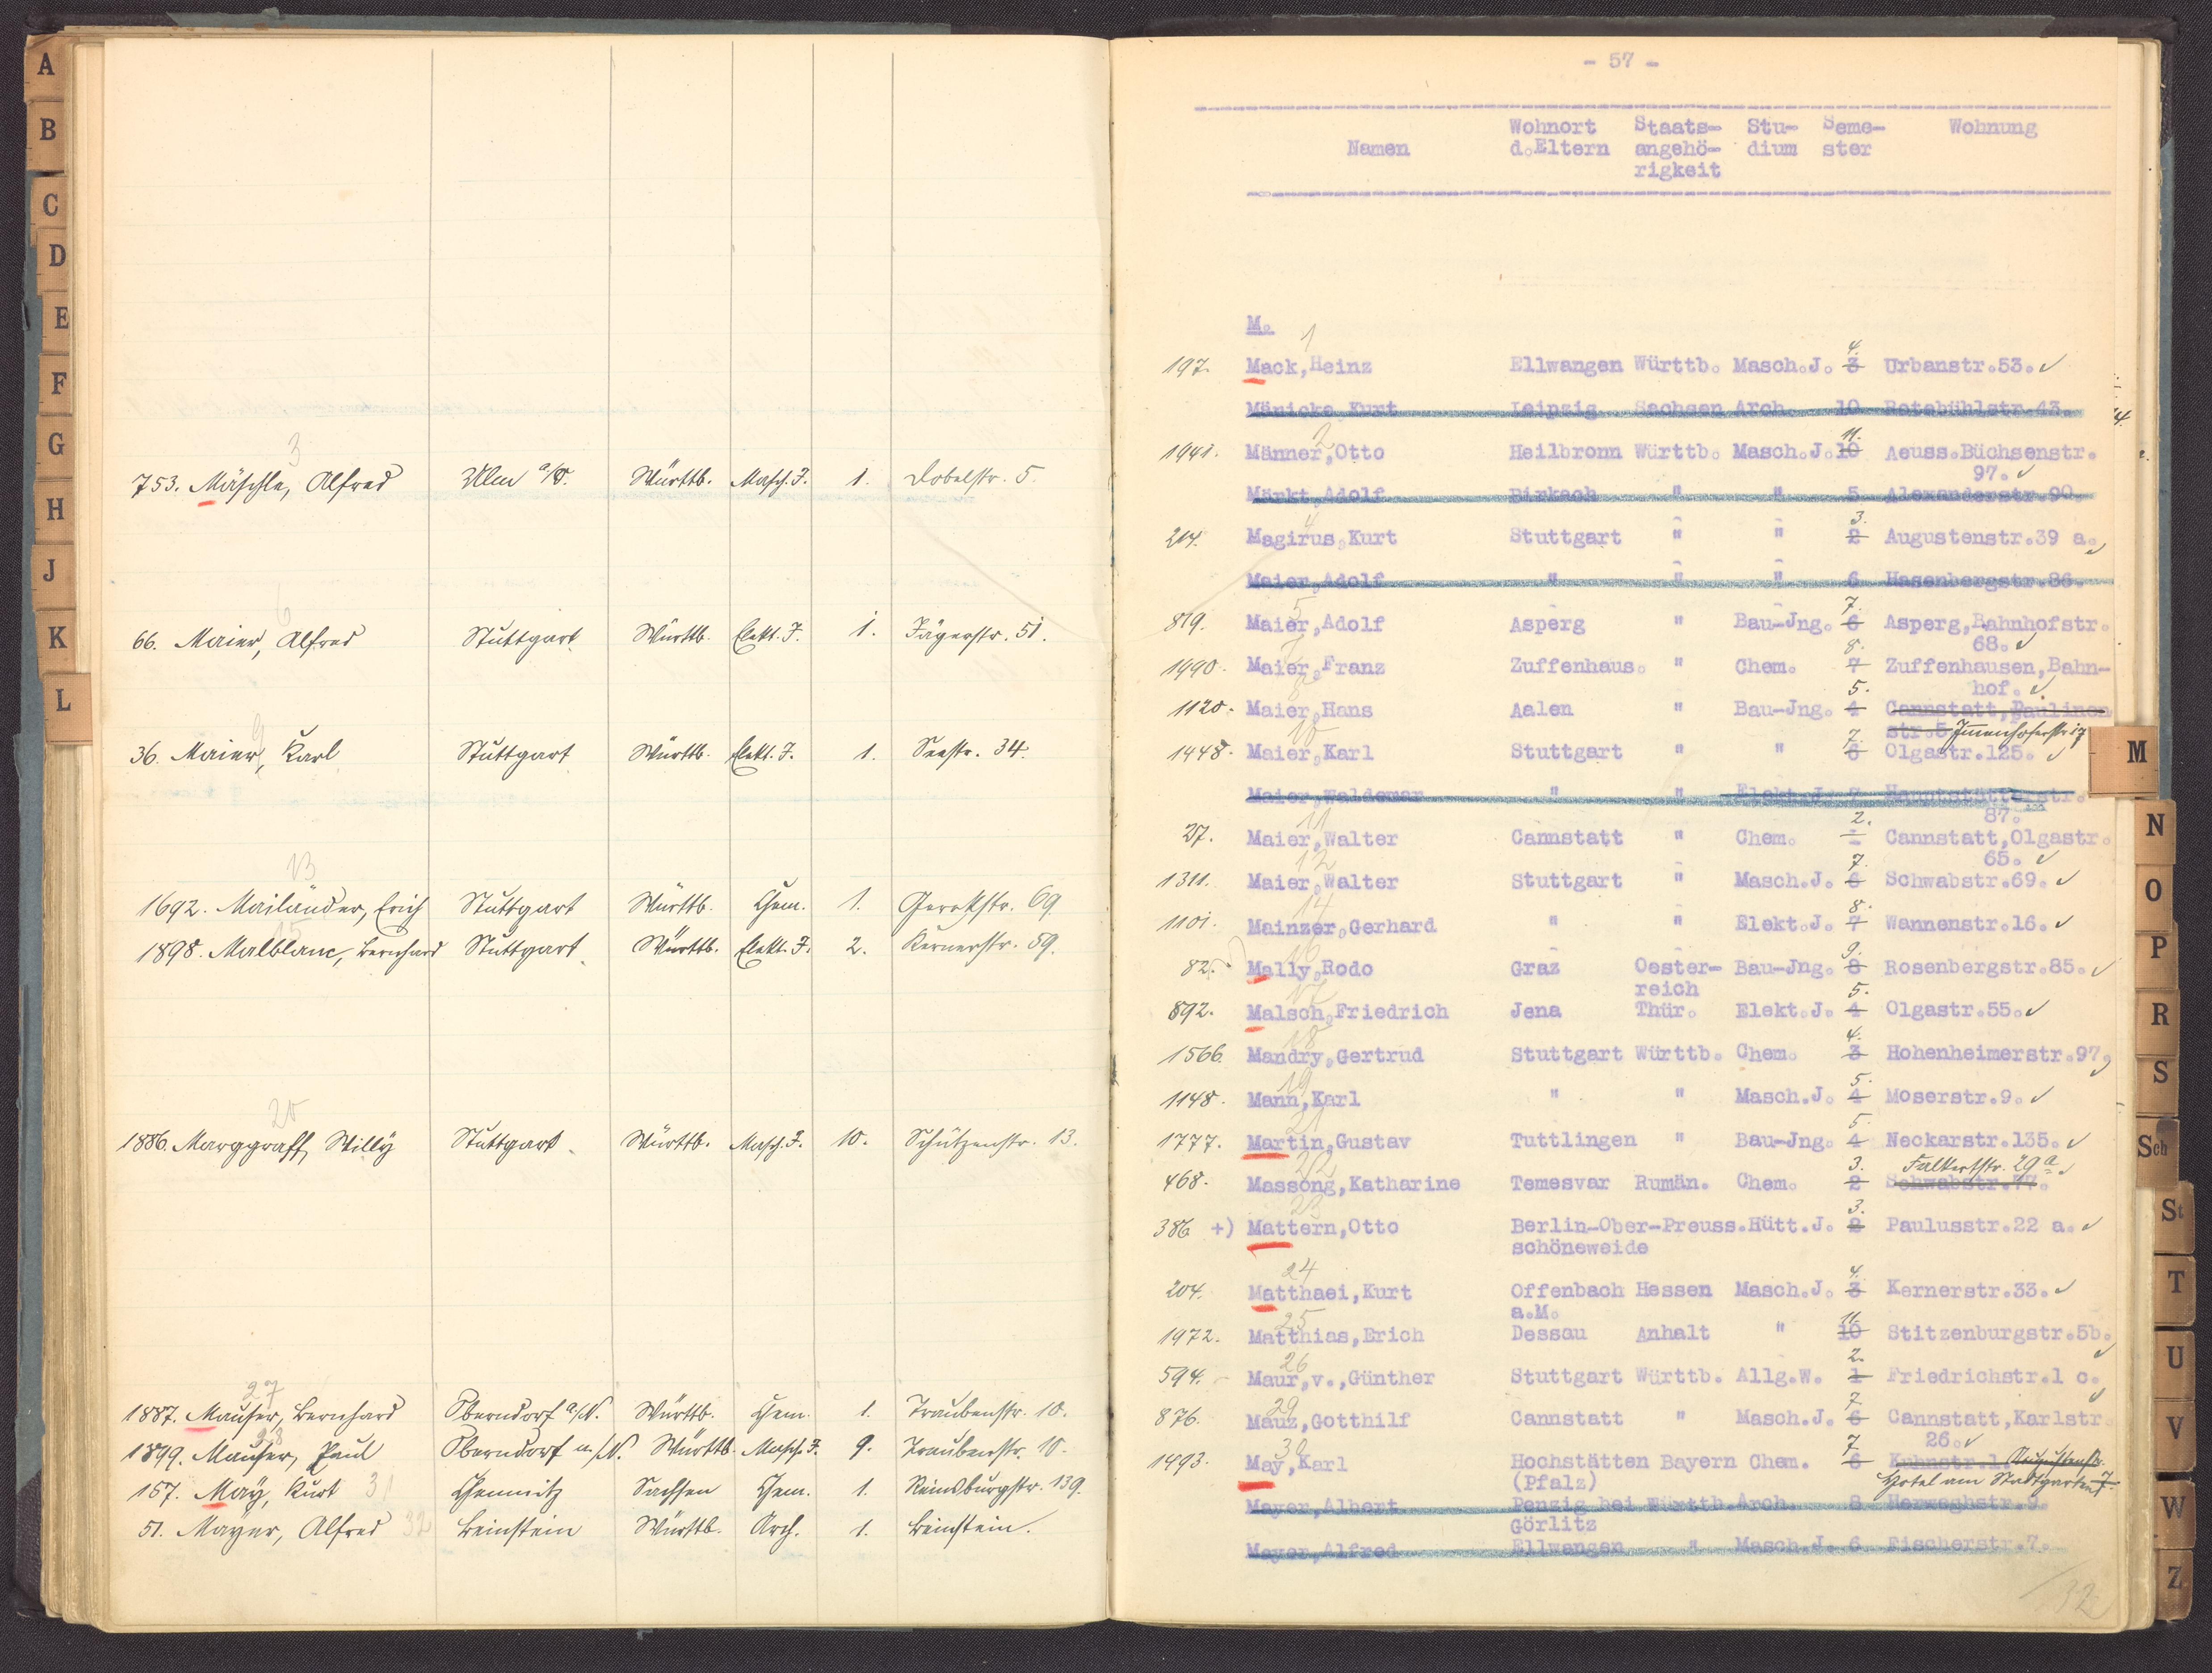 A
B
C
D
E
F
G
H
J
K
L
3
753. Mäschle, Alfred Ulm a/D. Württb. Masch. I. 1. Dobelstr. 5.
6
66. Maier, Alfred Stuttgart. Württb. Elekt. I. 1. Jägerstr. 51.
9
36. Maier, Karl Stuttgart Württb. Elekt. I. 1. Seestr. 34.
13
1692. Mailänder, Erich Stuttgart Württb. Chem. 1. Gerokstr. 69.
15
1898. Malblanc, Bernhard Stuttgart Württb. Elekt. I. 2. Kernerstr. 59.
20
1886. Marggraff, Willy Stuttgart. Württb. Masch. I. 10. Schützenstr. 13.
27
1887. Mauser, Bernhard Oberndorf a/N. Württb. Chem. 1. Traubenstr. 10.
28
1899. Mauser, Paul Oberndorf a/N. Württb. Masch. I. 9. Traubenstr. 10.
167. May, Kurt 31 Chemnitz Sachsen Chem. 1. Reinsburgstr. 139.
51. Mayer, Alfred 32 Beinstein Württb. Arch. 1. Beinstein.
- 57 -
Wohnort Staats- Stu- Seme- Wohnung
Namen d.Eltern angehö- dium ster
rigkeit
M.
1
4.
197. Mack,Heinz Ellwangen Württb. Masch.J. 3 Urbanstr.53.
Mänicke,Kurt Leipzig Sachsen Arch. 10 Rotebühlstr.43.
2 11.
1941. Männer,Otto Heilbronn Württb. Masch.J.10 Aeuss.Büchsenstr.
97.
Märkt,Adolf Birkach " " 5 Alexanderstr.90.
4 3.
214. Magirus,Kurt Stuttgart " " 2 Augustenstr.39 a.
Maier,Adolf " " " 6 Hasenbergstr.86.
5 7.
819. Maier,Adolf Asperg " Bau-Jng. 6 Asperg,Bahnhofstr.
68.
7 8.
1990. Maier,Franz Zuffenhaus. " Chem. 7 Zuffenhausen,Bahn-
hof.
8 5.
1120. Maier,Hans Aalen " Bau-Jng. 4 Cannstatt,Paulinen
str.5 Immenhoferstr. 17
10 7.
1448. Maier,Karl Stuttgart " " 6 Olgastr.125.
Maier,Waldemar " " Elekt.J. 7 Hauptstätterstr.
87.
11 2.
27. Maier,Walter Cannstatt " Chem. Cannstatt,Olgastr.
65.
12 7.
1311. Maier,Walter Stuttgart " Masch.J. 6 Schwabstr.69.
14 8.
1101. Mainzer,Gerhard " " Elekt.J. 7 Wannenstr.16.
16 9.
82. Mally,Rodo Graz Oester- Bau-Jng. 8 Rosenbergstr.85.
reich
17 5.
892. Malsch,Friedrich Jena Thür. Elekt.J. 4 Olgastr.55.
18 4.
1566. Mandry,Gertrud Stuttgart Württb. Chem. 3 Hohenheimerstr.97.
19 5.
1148. Mann,Karl " " Masch.J. 4 Moserstr.9.
21 5.
1777. Martin,Gustav Tuttlingen " Bau-Jng. 4 Neckarstr.135.
22 3. Falkertstr. 29a.
468. Massong,Katharine Temesvar Rumän. Chem. 2 Schwabstr.77.
23 3.
386 +) Mattern,Otto Berlin-Ober-Preuss.Hütt.J. 2 Paulusstr.22 a.
schöneweide
24 4.
204. Matthaei,Kurt Offenbach Hessen Masch.J. 3 Kernerstr.33.
a.M.
25 11.
1972. Matthias,Erich Dessau Anhalt " 10 Stitzenburgstr.5b.
26 2.
594. Maur,v.,Günther Stuttgart Württb. Allg.W. 1 Friedrichstr.1 c.
29 7.
876. Mauz,Gotthilf Cannstatt " Masch.J. 6 Cannstatt,Karlstr
26.
30 7.
1493. May,Karl Hochstätten Bayern Chem. 6 Kuhnstr.1. Augustenstr.
(Pfalz) Hotel am Stadtgarten 7.
Mayer,Albert Penzig bei Württb.Arch. 8 Herweghstr.9.
Görlitz
Mayer,Alfred Ellwangen " Masch.J. 6 Fischerstr.7.
32
M
N
O
P
R
S
Sch
St
T
U
V
W
Z